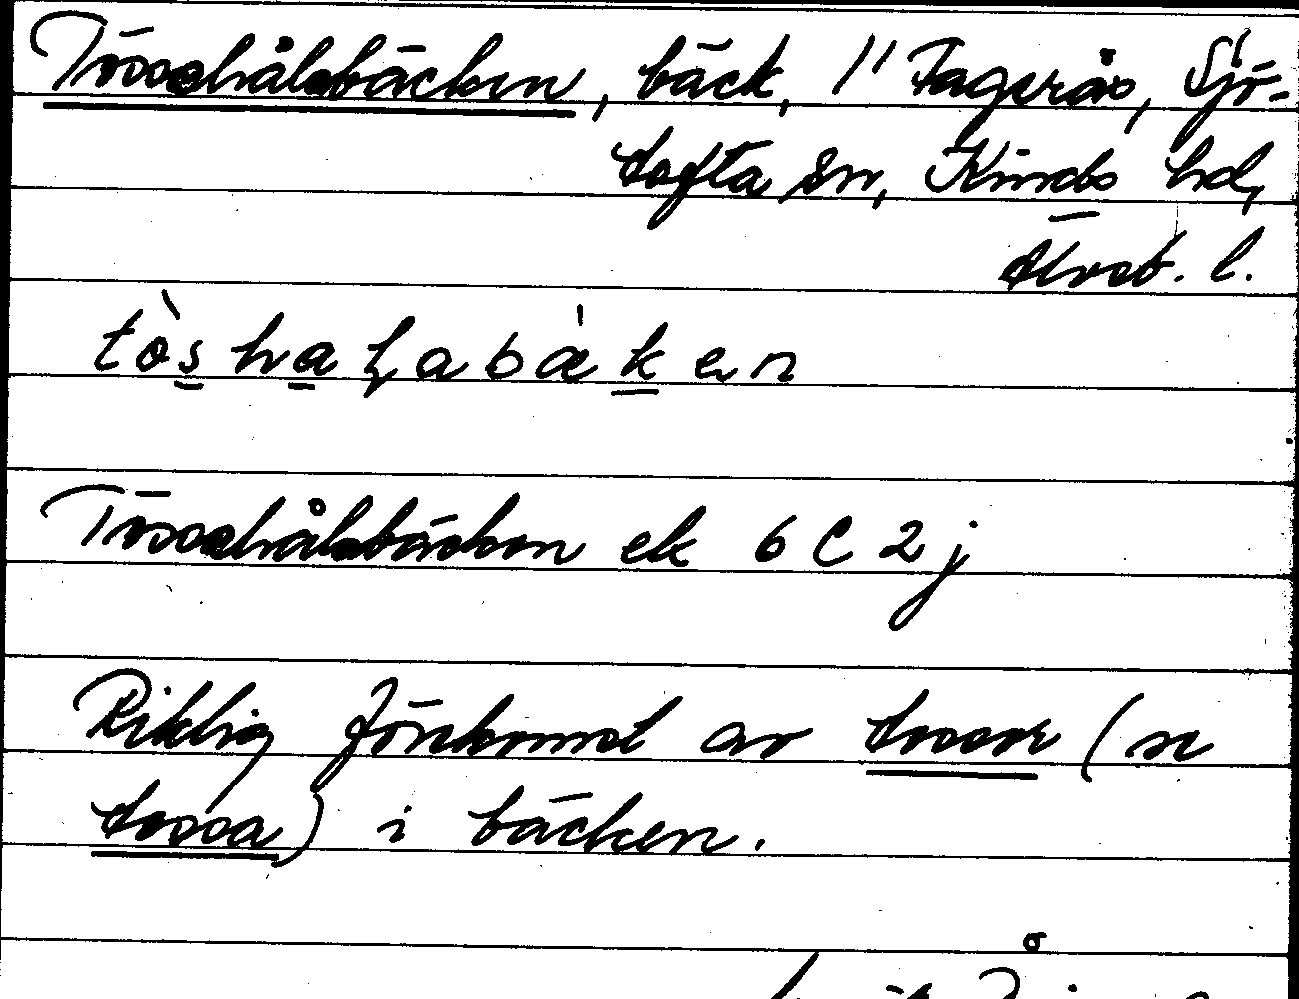 Tössehålabäcken, bäck, 1" Fagerås, Sjö-
tofta sn, Kinds hd,
Älvsb. l.
tòshaⱡabæken
Tössehålabäcken ek 6C2j
Riklig förekomst av tossor (se
tossa) i bäcken.